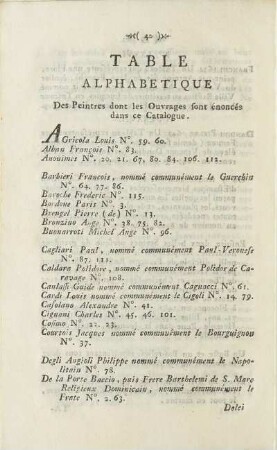 ( 42 )
TABLE
ALPHABETIQUE
Des Peintres dont les Ouvrages sont énoncés
dans ce Catalogue.
AGricola Louis N°. 59. 60.
Alban François N°. 83.
Anonimes N°. 20. 21. 67. 80. 84. 106. 112.
Barbieri François, nommé communément le Guerchin
N°. 64. 77. 86.
Baroche Frederic N°. 115.
Bordone Paris N°. 3. 81.
Brengel Pierre (de) N°. 13.
Bronzino Ange N°. 38. 75. 82.
Buonarroti Michel Ange N°. 96.
Cagliari Paul, nommé communément Paul-Veronese
N°. 87. 111.
Caldara Polidore, nommé communément Polidor de Ca-
ravage N°. 108.
Canlassi Guide nommé communement Cagnacci N°. 61.
Cardi Louis nommé communément le Cigoli N°. 14. 79.
Casolano Alexandre N°. 41.
Cignani Charles N°. 45. 46. 101.
Cosimo N°. 22. 23.
Courtois Jacques nommé communément le Bourguignon
N°. 37.
Degli Angioli Philippe nommé communément le Napo-
litain N°. 78.
De la Porte Baccio, puis Frere Barthelemi de S. Marc
Religieux Dominicain, nommé communément le
Frate N°. 2. 63.
Dolci